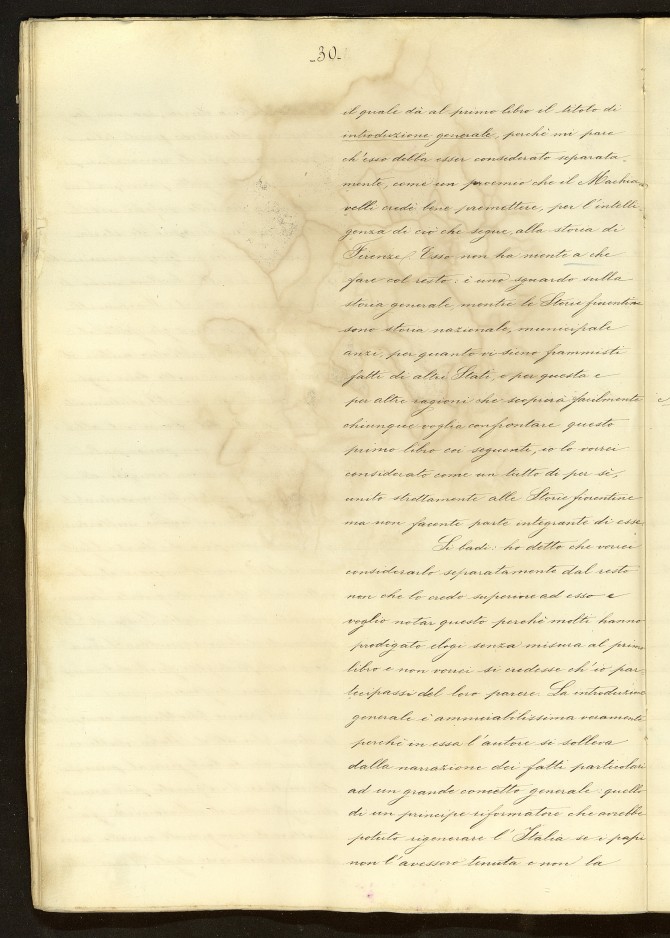 -30-
il quale dà al primo libro il titolo di
introduzione generale, perchè mi pare
ch'esso debba esser considerato separata-
mente, come un proemio che il Machia-
velli credè bene premettere, per l'intelli-
genza di ciò che segue, alla storia di
Firenze. Esso non ha niente a che
fare col resto: è uno sguardo sulla
storia generale, mentre le Storie fiorentine
sono storia nazionale, municipale
anzi, per quanto vi sieno frammisti
fatti di altri Stati, e per questa e
per altre ragioni che scoprirà facilmente
chiunque voglia confrontare questo
primo libro coi seguente, io lo vorrei
considerato come un tutto di per sè,
unito strettamente alle Storie fiorentine
ma non facente parte integrante di esse.
Si badi: ho detto che vorrei
considerarlo separatamente dal resto
non che lo credo superiore ad esso e
voglio notar questo perchè molti hanno
prodigato elogi senza misura al primo
libro e non vorrei si credesse ch'io par-
tecipassi del loro parere. La introduzione
generale è ammirabilissima veramente
perchè in essa l'autore si solleva
dalla narrazione dei fatti particolari
ad un grande concetto generale: quello
di un principe riformatore che avrebbe
potuto rigenerare l'Italia se i papi
non l'avessero tenuta e non la